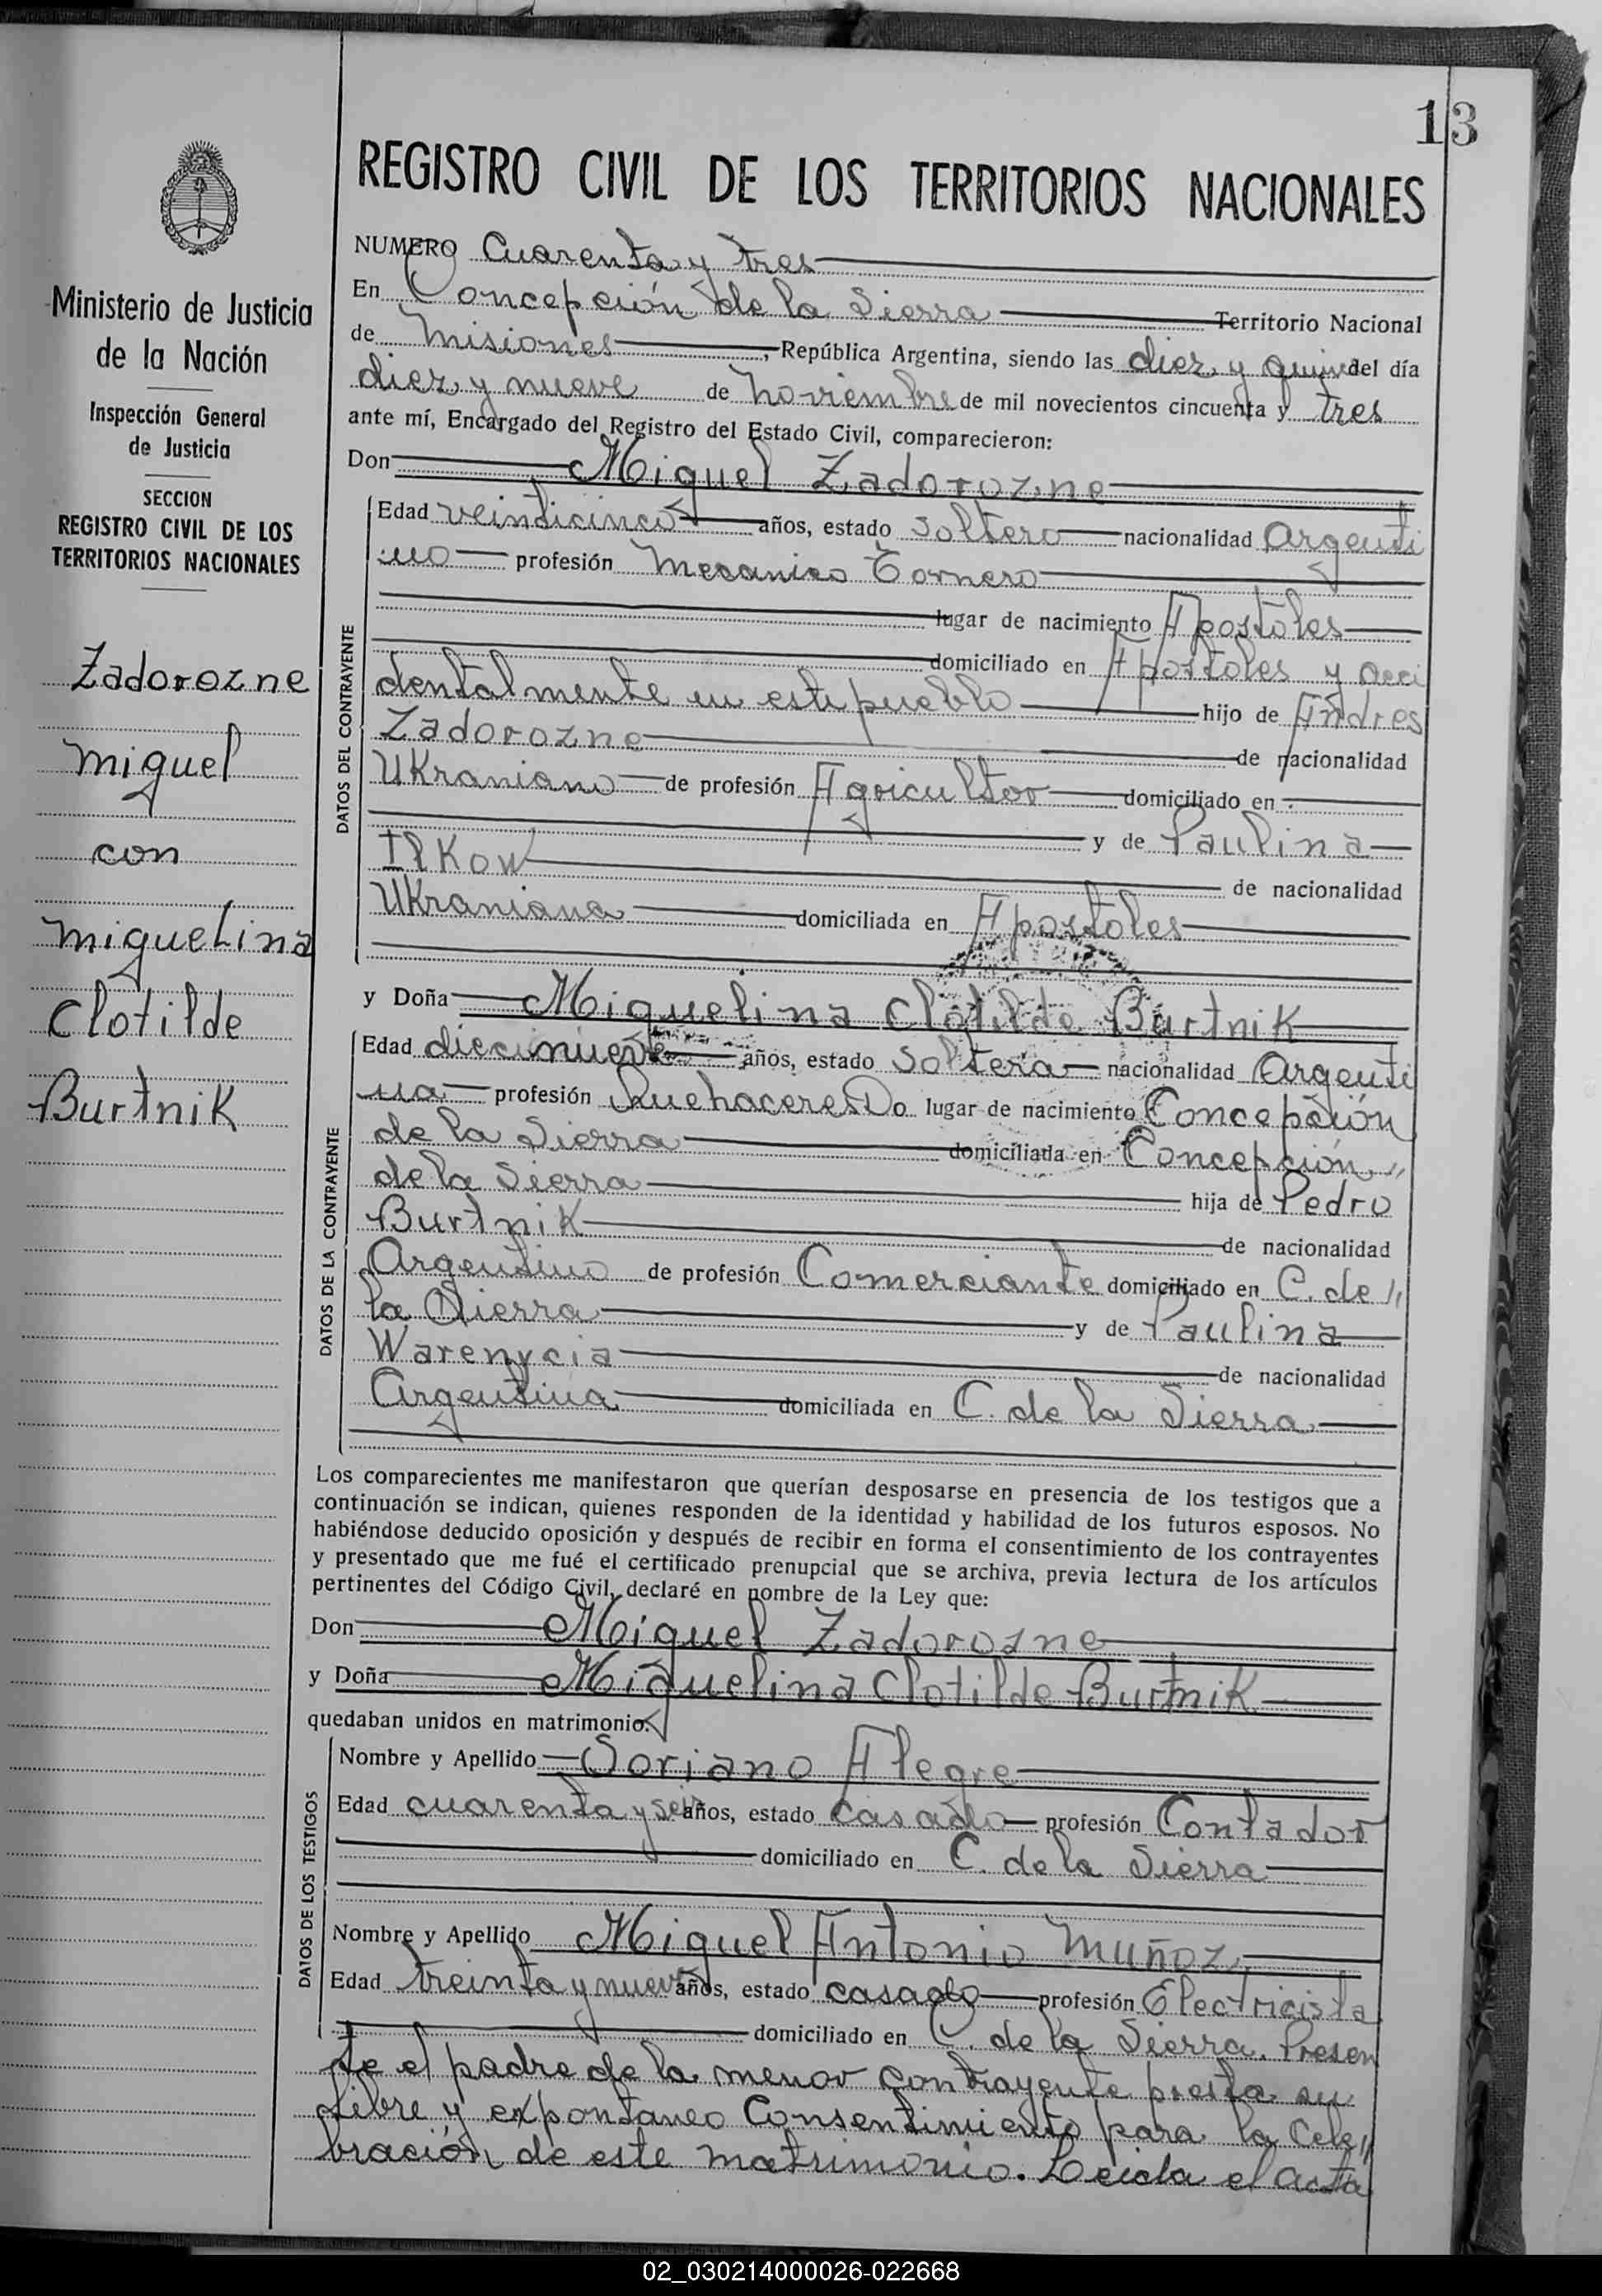 13
REGISTRO CIVIL DE LOS TERRITORIOS NACIONALES
Ministerio de Justicia
de la Nación
Inspección General
de Justicia
SECCION
REGISTRO CIVIL DE LOS
TERRITORIOS NACIONALES
Zadorozne
Miguel
con
Miguelina
Clotilde
Burtnik
NUMERO Cuarenta y tres
En Concepción de la Sierra Territorio Nacional
de Misiones, República Argentina, siendo las diez y quince del día
diez y nueve de Noviembre de mil novecientos cincuenta y tres
ante mí, Encargado del Registro del Estado Civil, comparecieron:
Don Miguel Zadorozne
DATOS DEL CONTRAYENTE
Edad veindicinco años, estado Soltero nacionalidad Argenti
no profesión Mecanico Tornero
lugar de nacimiento Apostoles
domiciliado en Apostoles y acci
dentalmente en este pueblo hijo de Andres
Zadorozne de nacionalidad
Ukraniano de profesión Agricultor domiciliado en
y de Paulina
Ilkow de nacionalidad
Ukraniana domiciliada en Apostoles
y Doña Miguelina Clotilde Burtnik
DATOS DE LA CONTRAYENTE
Edad diecinueve años, estado Soltera nacionalidad Argenti
na profesión Quehaceres Do lugar de nacimiento Concepción
de la Sierra domiciliada en Concepción "
de la Sierra hija de Pedro
Burtnik de nacionalidad
Argentino de profesión Comerciante domiciliado en C. de "
la Sierra y de Paulina
Warenycia de nacionalidad
Argentina domiciliada en C. de la Sierra
Los comparecientes me manifestaron que querían desposarse en presencia de los testigos que a
continuación se indican, quienes responden de la identidad y habilidad de los futuros esposos. No
habiéndose deducido oposición y después de recibir en forma el consentimiento de los contrayentes
y presentado que me fué el certificado prenupcial que se archiva, previa lectura de los artículos
pertinentes del Código Civil, declaré en nombre de la Ley que:
Don Miguel Zadorozne
y Doña Miguelina Clotilde Burtnik
quedaban unidos en matrimonio.
DATOS DE LOS TESTIGOS
Nombre y Apellido Soriano Alegre
Edad cuarenta y seis años, estado casado profesión Contador
domiciliado en C. de la Sierra
Nombre y Apellido Miguel Antonio Muñoz
Edad treinta y nueve años, estado casado profesión Electricista
domiciliado en C. de la Sierra. Presen
te el padre de la menor contrayente presta su
libre y expontaneo Consentimiento para la Cele"
bración de este matrimonio. Leida el acta
02_030214000026-022668